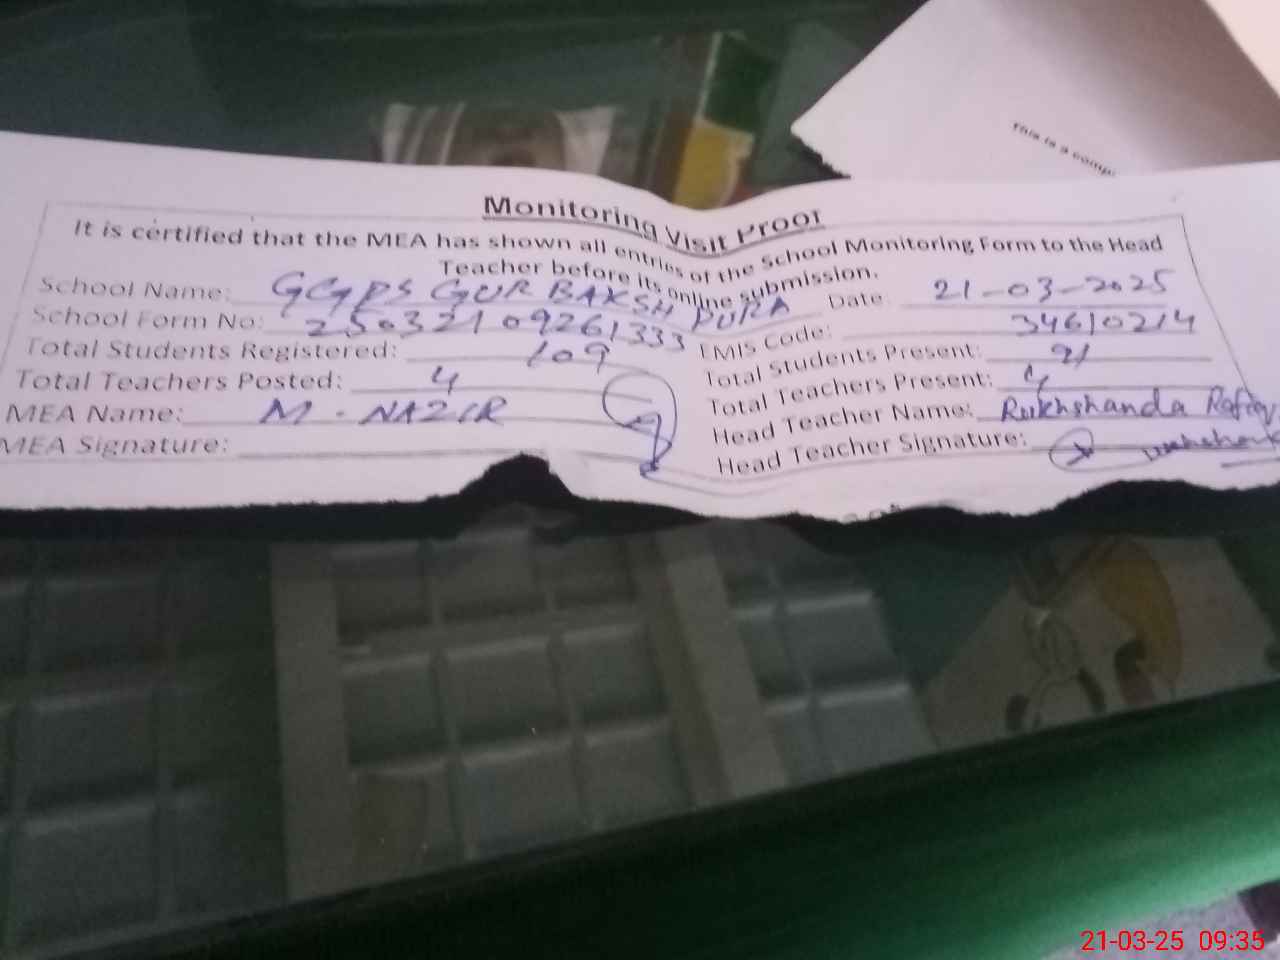 This is a comp
Monitoring Visit Proof
It is certified that the MEA has shown all entries of the School Monitoring Form to the Head
Teacher before its online submission.
School Name: GGPS GUR BAKSH PURA Date: 21-03-2025
School Form No: 25032109261333 EMIS Code: 34610214
Total Students Registered: 109 Total Students Present: 91
Total Teachers Posted: 4 Total Teachers Present: 4
MEA Name: M. NAZIR Head Teacher Name: Rukhshanda Rafiq
MEA Signature: Head Teacher Signature:
21-03-25 09:35